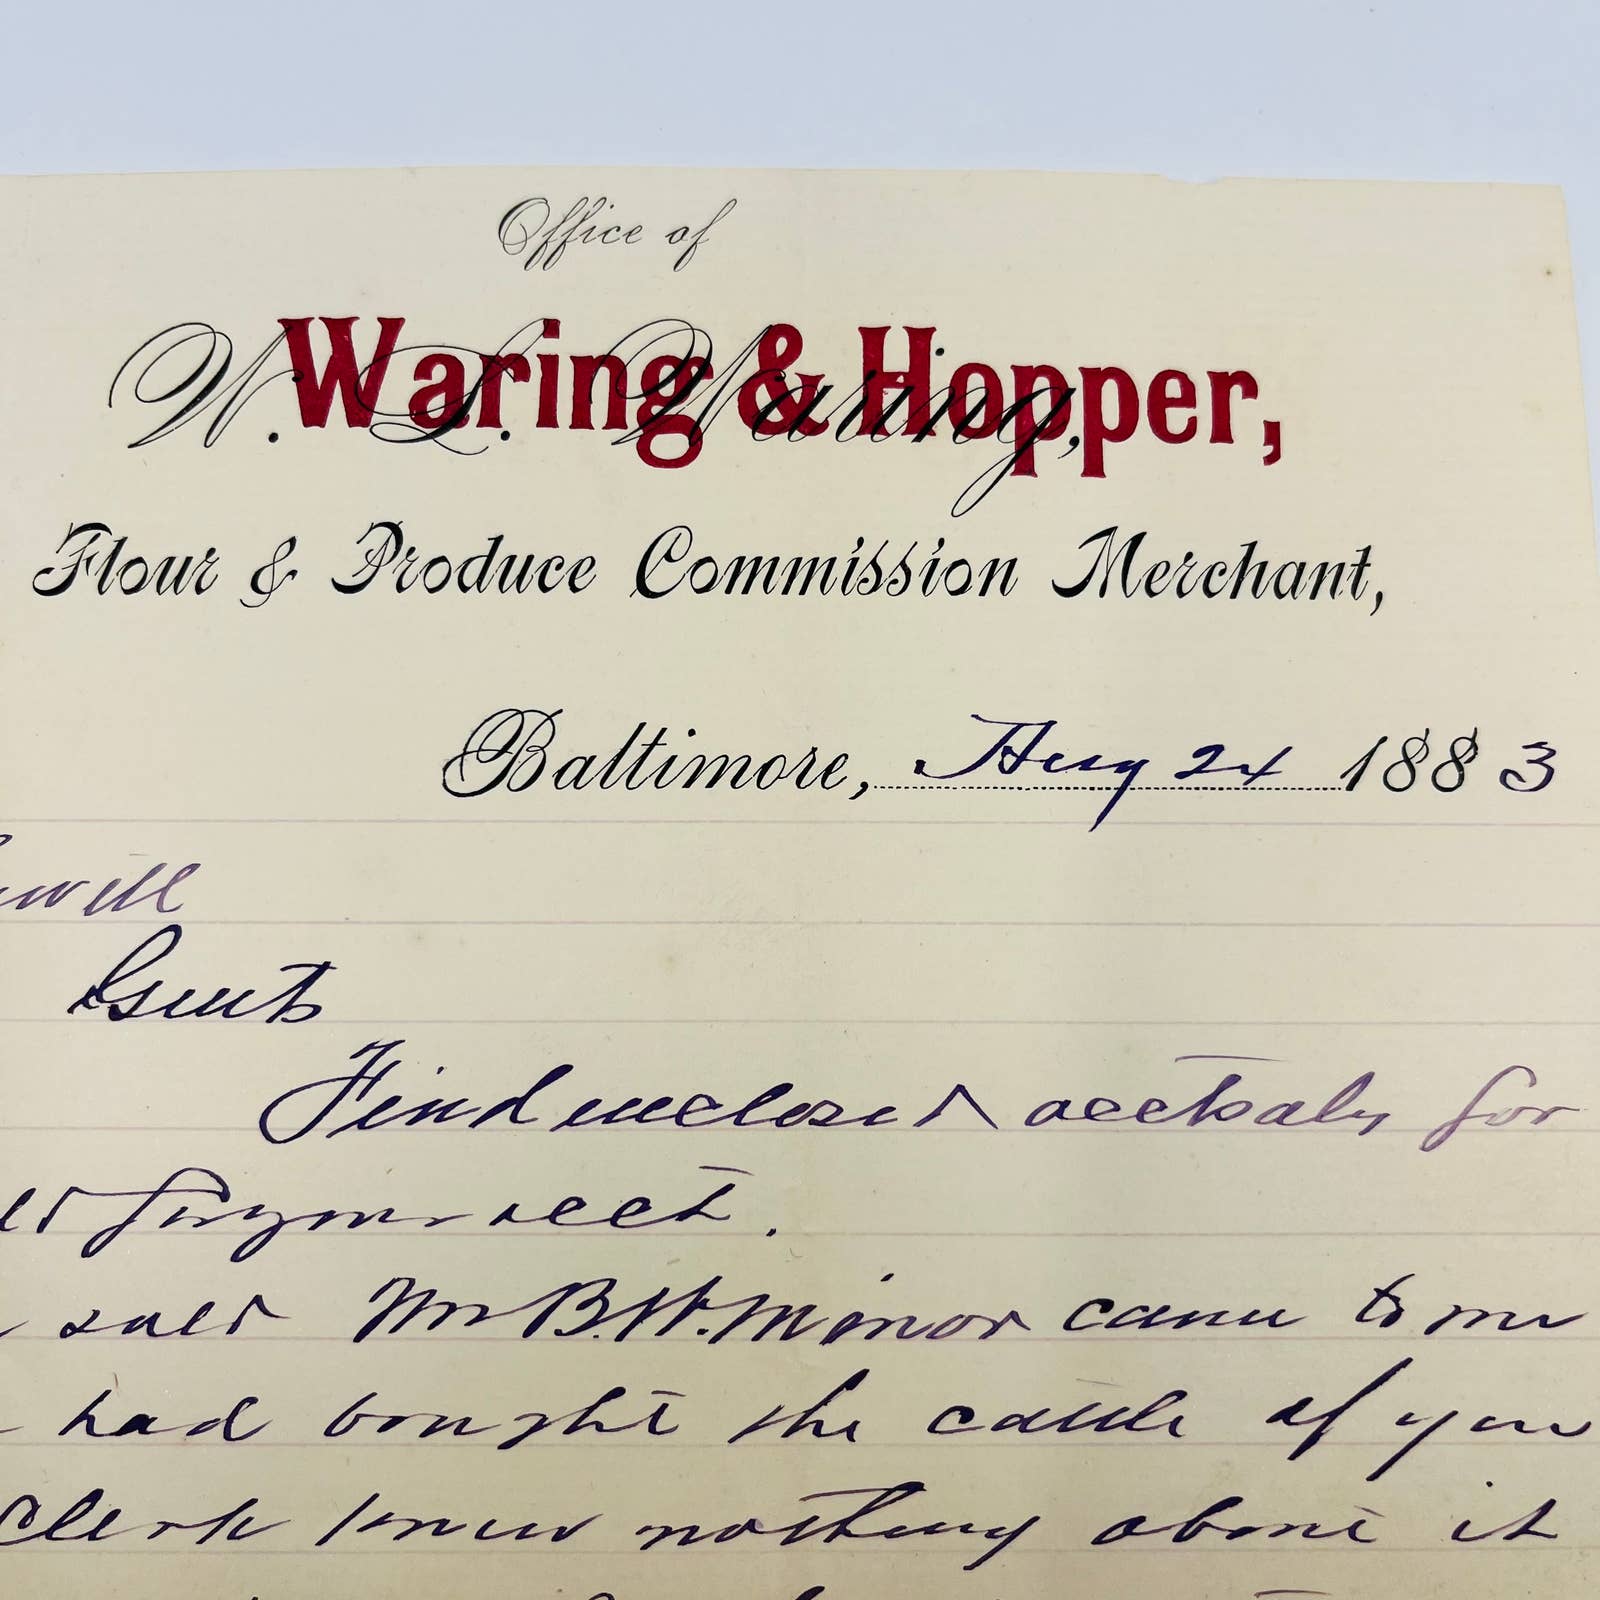 Office of
W. L. Waring,
Waring & Hopper,
Flour & Produce Commission Merchant,
Baltimore, Aug 24 1883
Gents
Find enclosed acct sales for
for your acct.
sold Mr B. W. Minor came to me
had bought the cattle of you
clerk knew nothing about it